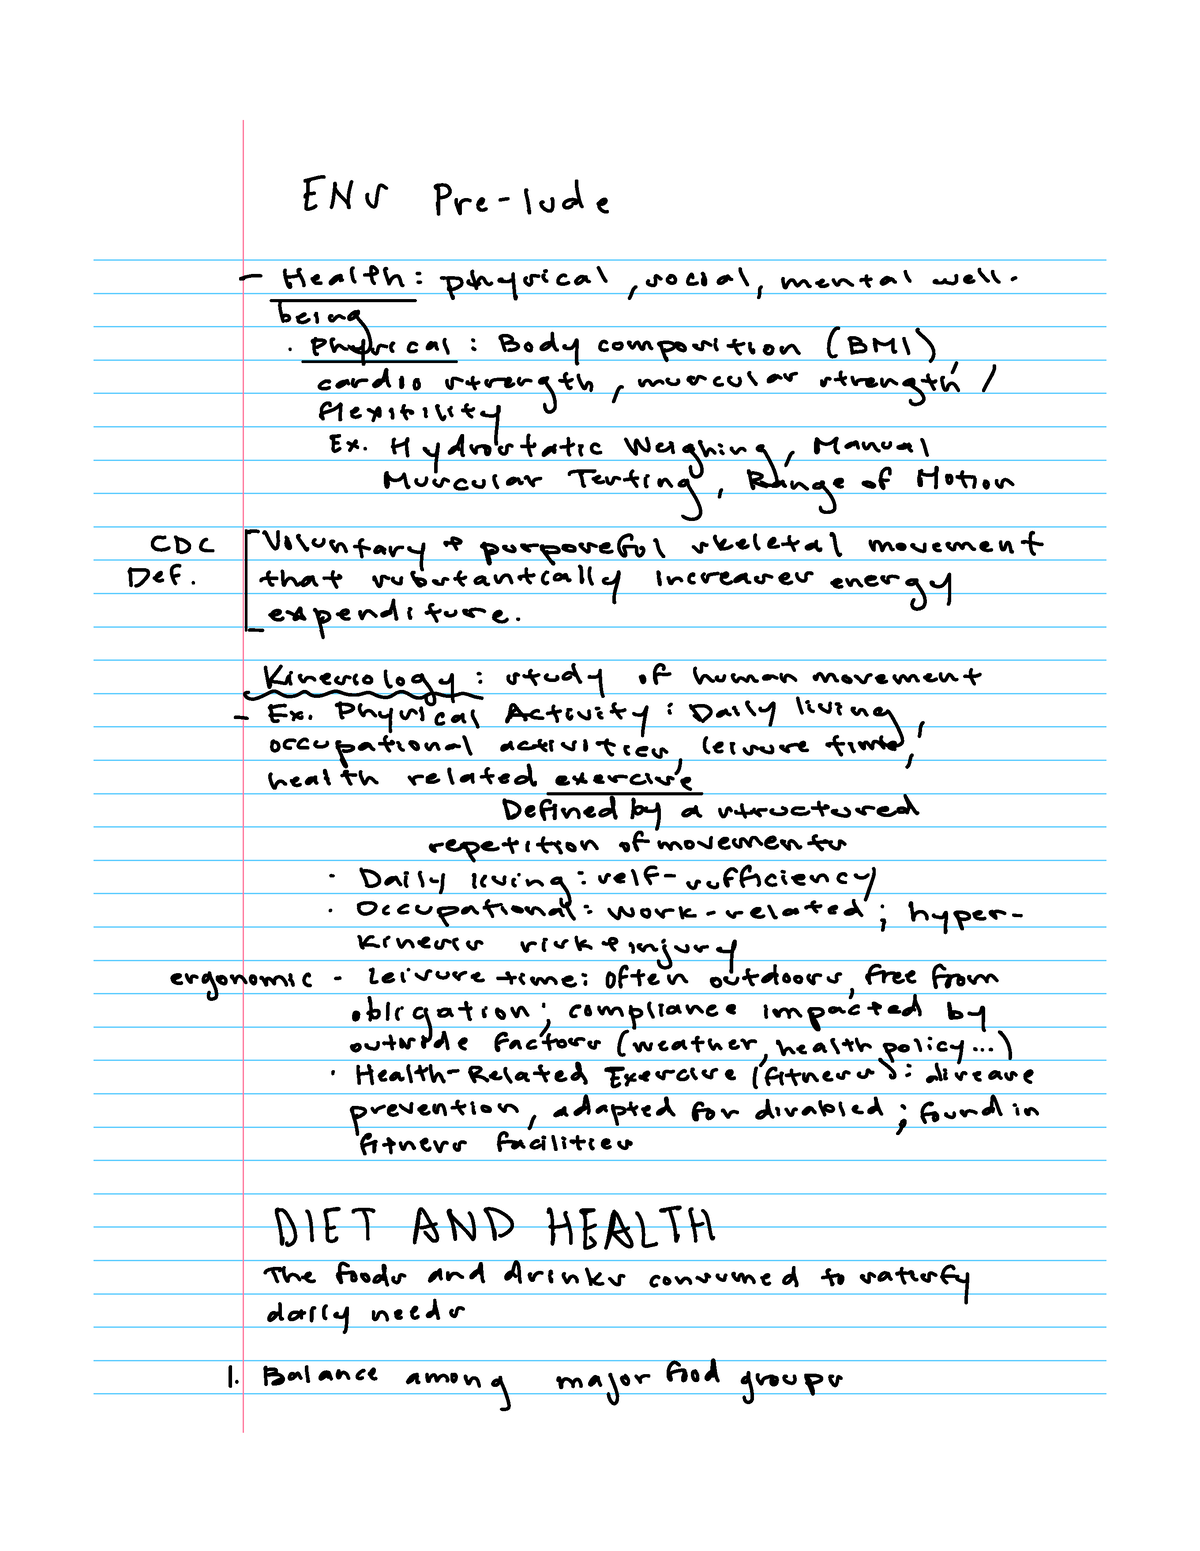 ENS Pre-lude
- Health: physical, social, mental well-
being
· Physical: Body composition (BMI),
cardio strength, muscular strength /
flexibility
Ex. Hydrostatic Weighing, Manual
Muscular Testing, Range of Motion
CDC Def. [Voluntary + purposeful skeletal movement
that substantially increases energy
expenditure.
Kinesiology: study of human movement
- Ex. Physical Activity: Daily living,
occupational activities, leisure time,
health related exercise
Defined by a structured
repetition of movements
· Daily living: self-sufficiency
· Occupational: work-related; hyper-
kinesis risk + injury
ergonomic - Leisure time: often outdoors, free from
obligation; compliance impacted by
outside factors (weather, health policy...)
· Health-Related Exercise (fitness): disease
prevention, adapted for disabled; found in
fitness facilities
DIET AND HEALTH
The foods and drinks consumed to satisfy
daily needs
1. Balance among major food groups